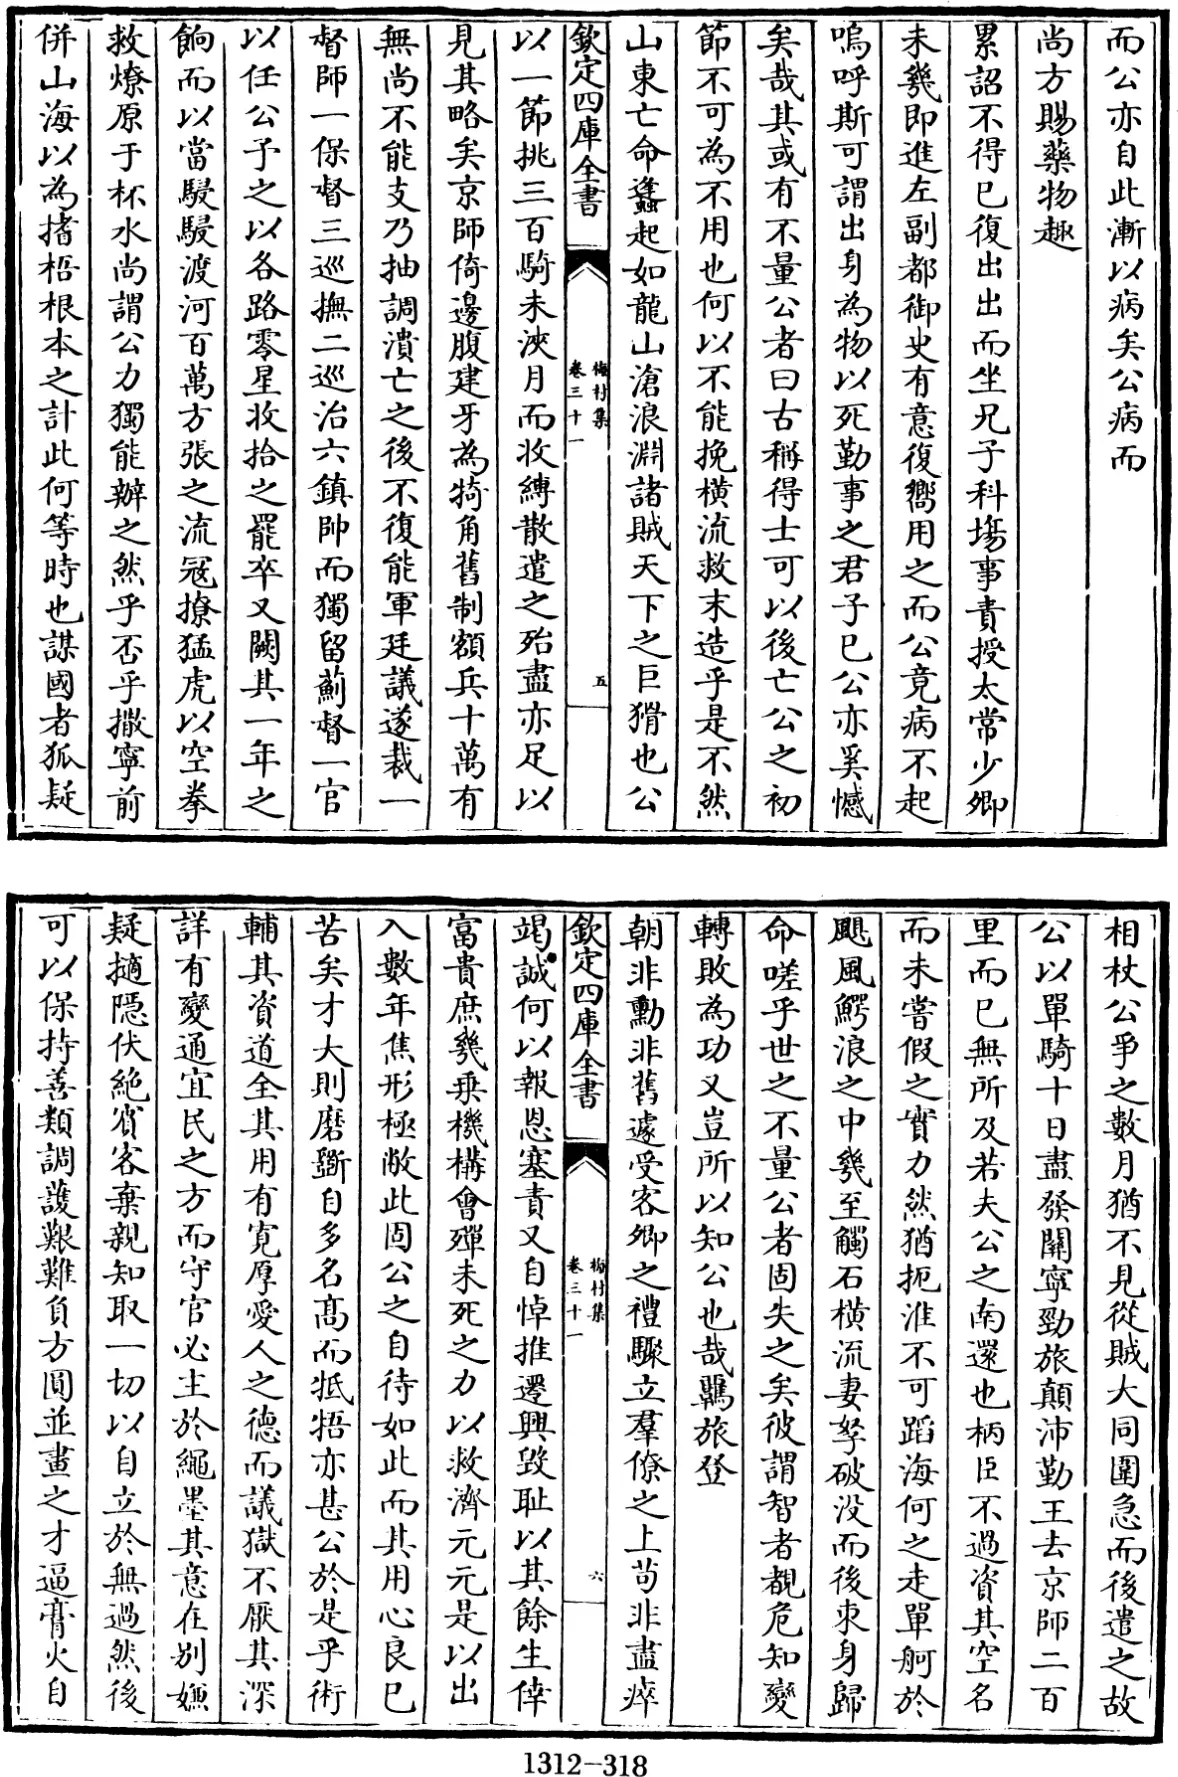 而公亦自此漸以病矣公病而
尚方賜藥物趣
累詔不得已復出出而坐兄子科塲事責授太常少卿
未幾即進左副都御史有意復嚮用之而公竟病不起
嗚呼斯可謂出身為物以死勤事之君子已公亦奚憾
矣哉其或有不量公者曰古稱得士可以後亡公之初
節不可為不用也何以不能挽橫流救末造乎是不然
山東亡命蠭起如龍山滄浪淵諸賊天下之巨猾也公
欽定四庫全書
梅村集
卷三十一
五
以一節挑三百騎未浹月而收縛散遣之殆盡亦足以
見其略矣京師倚邊腹建牙為犄角舊制額兵十萬有
無尚不能支乃抽調潰亡之後不復能軍廷議遂裁一
督師一保督三巡撫二巡治六鎮帥而獨留薊督一官
以任公予之以各路零星收拾之罷卒又闕其一年之
餉而以當駸駸渡河百萬方張之流冦撩猛虎以空拳
救燎原于杯水尚謂公力獨能辦之然乎否乎撒寧前
併山海以為揩梧根本之計此何等時也謀國者狐疑
相杖公爭之數月猶不見從賊大同圍急而後遣之故
公以單騎十日盡發關寧勁旅顛沛勤王去京師二百
里而已無所及若夫公之南還也柄臣不過資其空名
而未嘗假之實力然猶扼淮不可蹈海何之走單舸於
颶風鰐浪之中幾至觸石橫流妻孥破没而後束身歸
命嗟乎世之不量公者固失之矣彼謂智者覩危知變
轉敗為功又豈所以知公也哉羈旅登
朝非勳非舊遽受客卿之禮驟立羣僚之上茍非盡瘁
欽定四庫全書
梅村集
卷三十一
六
竭誠何以報恩塞責又自悼推遷興毀耻以其餘生倖
富貴庶幾乗機構會殫未死之力以救濟元元是以出
入數年焦形極敝此固公之自待如此而其用心良已
苦矣才大則磨斵自多名髙而牴牾亦甚公於是乎術
輔其資道全其用有寛厚愛人之德而議獄不厭其深
詳有變通宜民之方而守官必主於繩墨其意在别嫌
疑擿隱伏絶賔客棄親知取一切以自立於無過然後
可以保持善類調護艱難負方圓並畫之才逼膏火自
1312-318